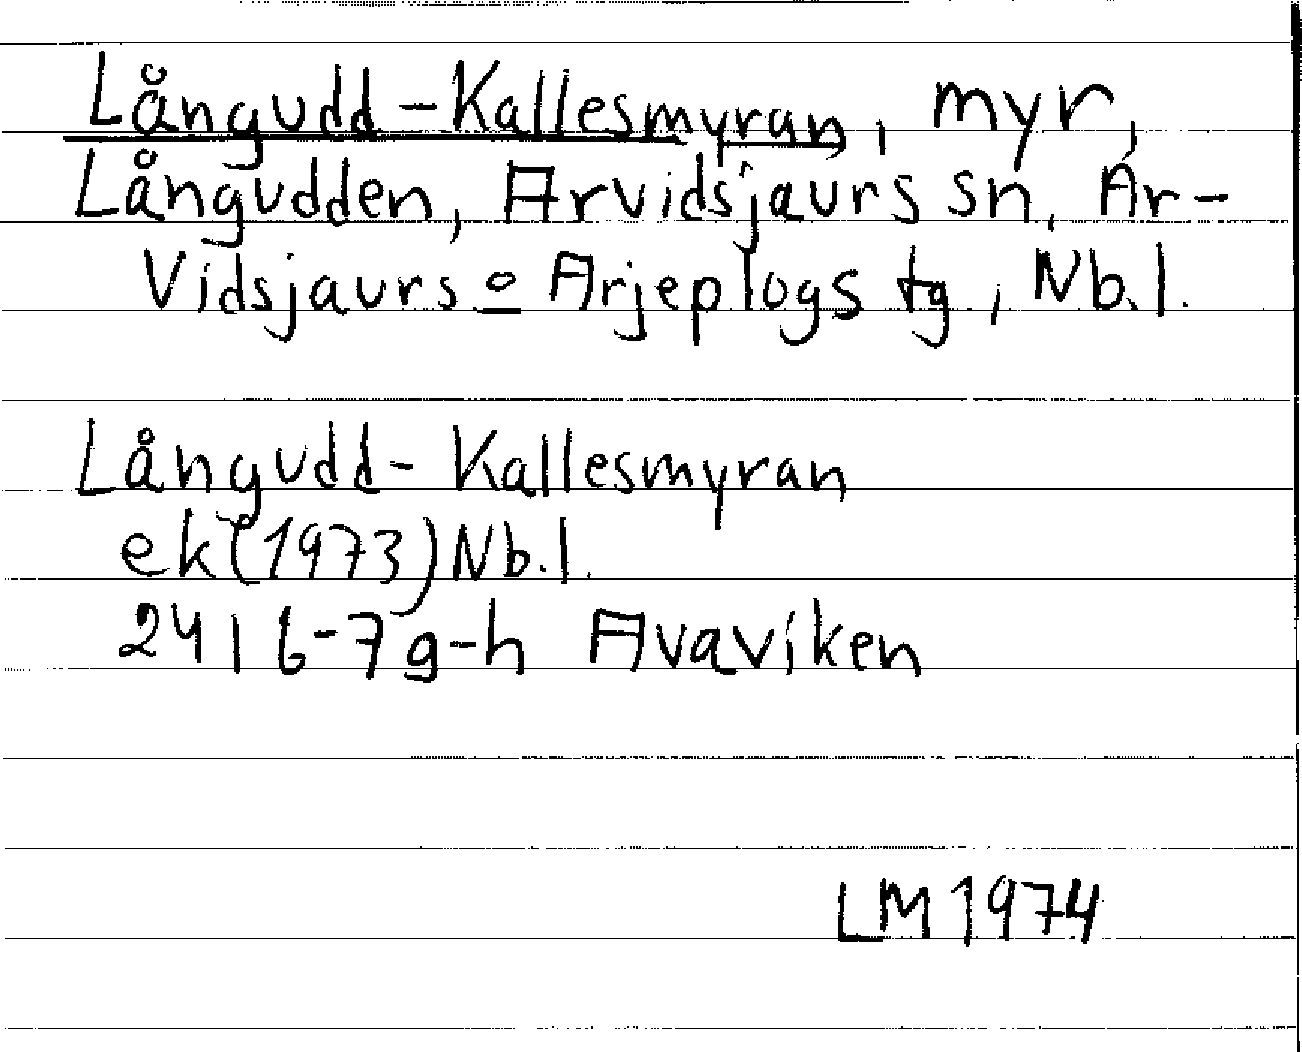 Långudd-Kallesmyran, myr,
Långudden, Arvidsjaurs sn, Ar-
vidsjaurs o Arjeplogs tg, Nb.l.
Långudd-Kallesmyran
ek(1973)Nb.l.
24I 6-7g-h Avaviken
LM 1974